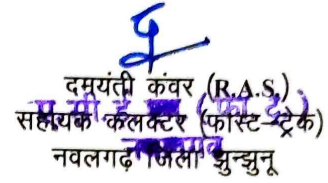 दमयंती कंवर (R.A.S.)
सहायक कलक्टर (फास्ट ट्रेक)
नवलगढ़ जिला झुन्झुनू